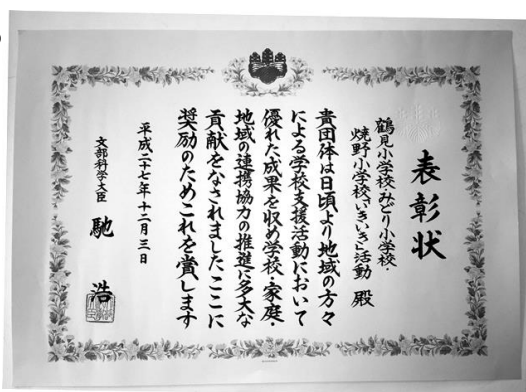 表彰状
鶴見小学校・みどり小学校・
焼野小学校“いきいき”活動 殿
貴団体は日頃より地域の方々
による学校支援活動において
優れた成果を収め学校・家庭・
地域の連携協力の推進に多大な
貢献をなされましたここに
奨励のためこれを賞します
平成二十七年十二月三日
文部科学大臣 馳 浩